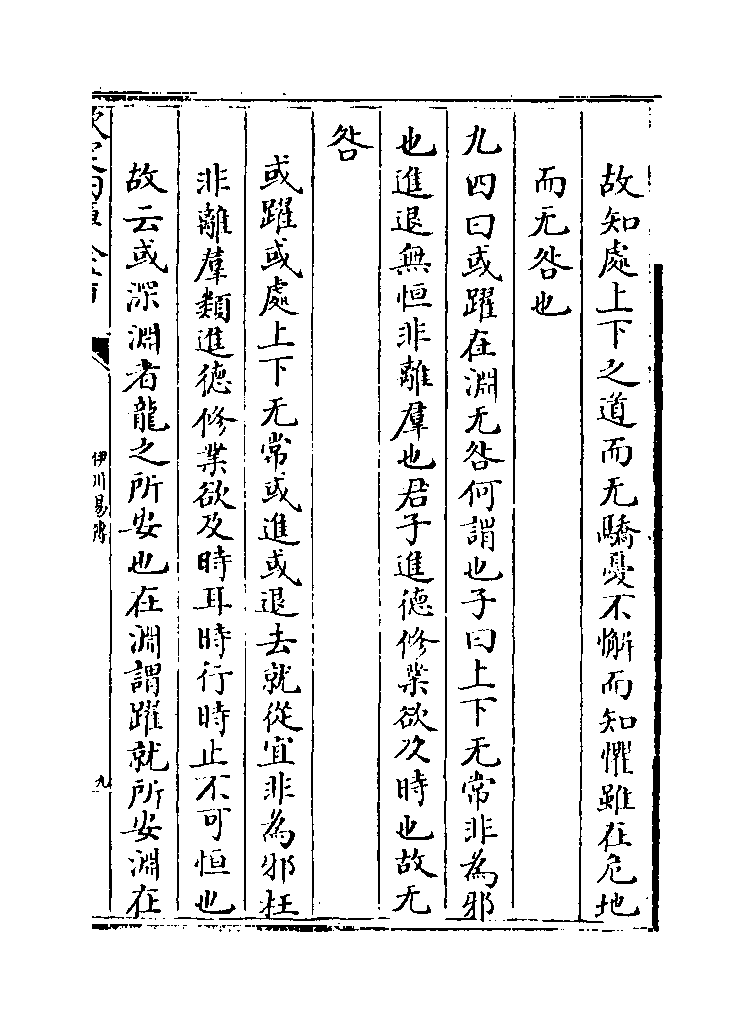 故知處上下之道而无驕憂不懈而知懼雖在危地
而无咎也
九四曰或躍在淵无咎何謂也子曰上下无常非為邪
也進退無恒非離羣也君子進德修業欲及時也故无
咎
或躍或處上下无常或進或退去就從宜非為邪枉
非離羣類進德修業欲及時耳時行時止不可恒也
故云或深淵者龍之所安也在淵謂躍就所安淵在
伊川易傳
九